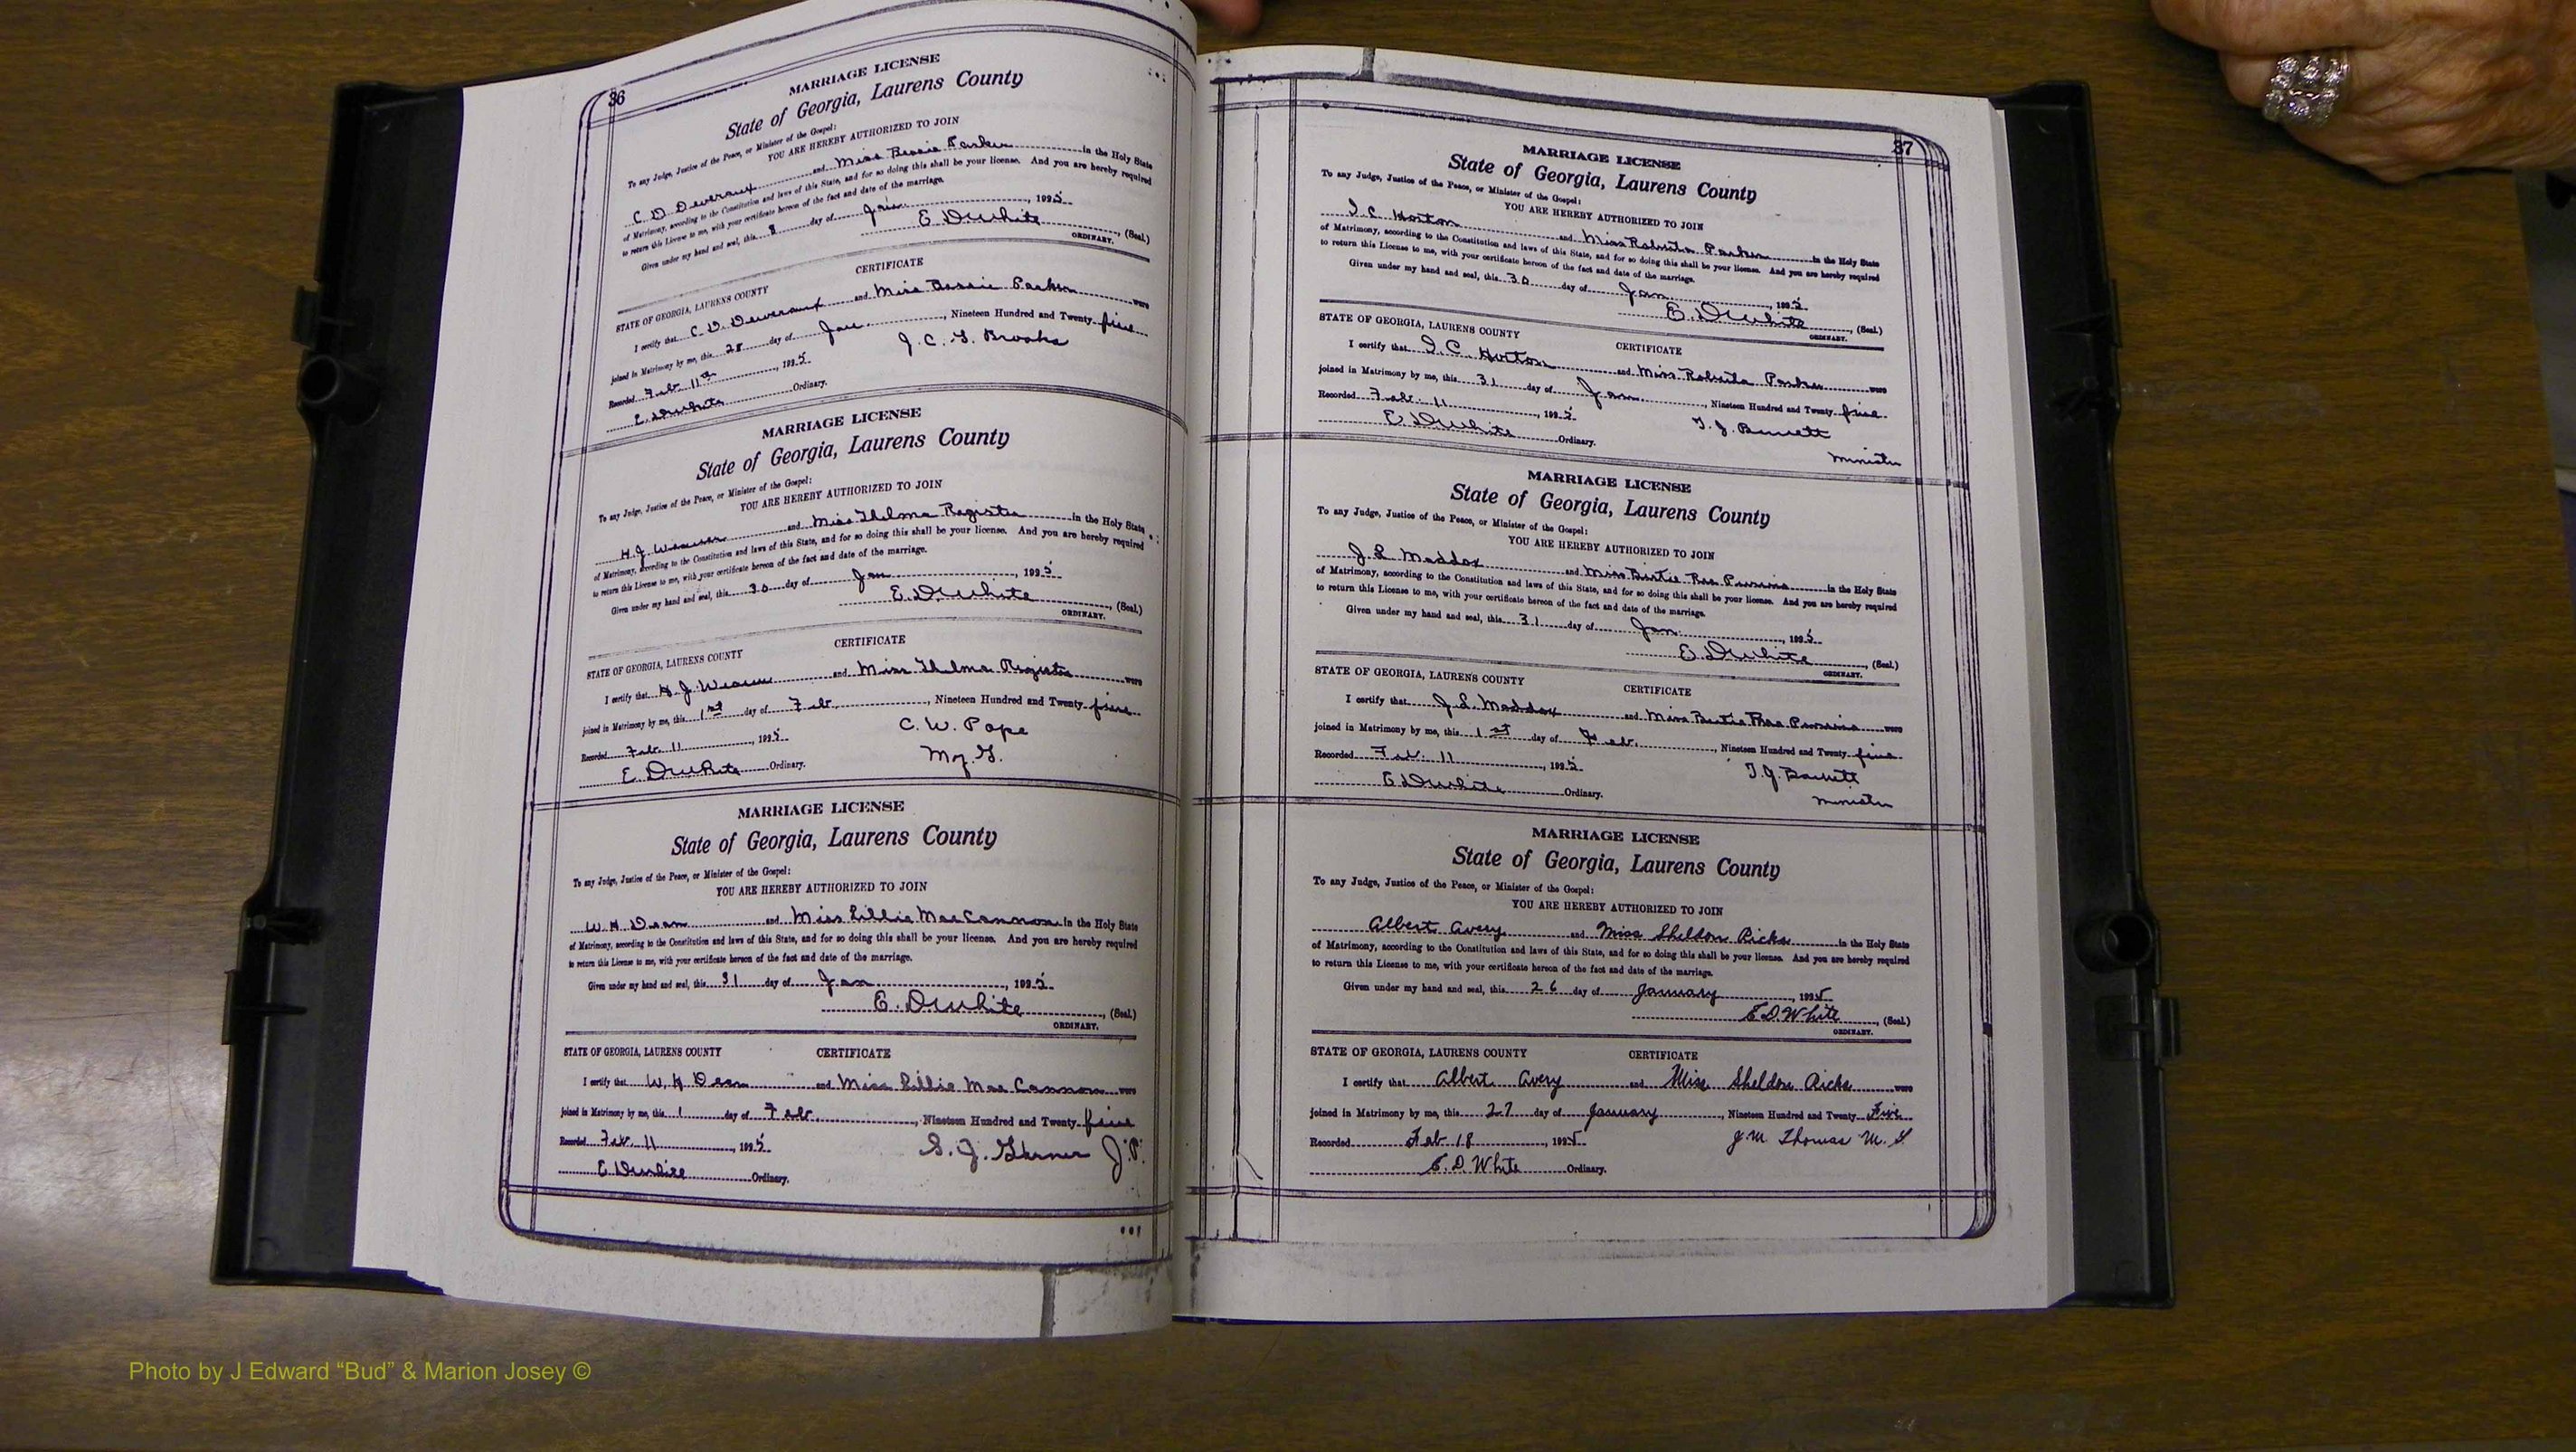 36
MARRIAGE LICENSE
State of Georgia, Laurens County
To any Judge, Justice of the Peace, or Minister of the Gospel:
YOU ARE HEREBY AUTHORIZED TO JOIN
C. D. Deveraux and Miss Bessie Parker in the Holy State
of Matrimony, according to the Constitution and laws of this State, and for so doing this shall be your license. And you are hereby required
to return this License to me, with your certificate hereon of the fact and date of the marriage.
Given under my hand and seal, this 8 day of Jan, 1925
E. D. White, (Seal.)
ORDINARY.
CERTIFICATE
STATE OF GEORGIA, LAURENS COUNTY
I certify that C. D. Deveraux and Miss Bessie Parker were
joined in Matrimony by me, this 28 day of Jan, Nineteen Hundred and Twenty five
Recorded Feb 11th, 1925 J. C. G. Brooks
E. D. White Ordinary.
MARRIAGE LICENSE
State of Georgia, Laurens County
To any Judge, Justice of the Peace, or Minister of the Gospel:
YOU ARE HEREBY AUTHORIZED TO JOIN
H. J. and Miss Thelma Register in the Holy State
of Matrimony, according to the Constitution and laws of this State, and for so doing this shall be your license. And you are hereby required
to return this License to me, with your certificate hereon of the fact and date of the marriage.
Given under my hand and seal, this 30 day of Jan, 1925
E. D. White, (Seal.)
ORDINARY.
CERTIFICATE
STATE OF GEORGIA, LAURENS COUNTY
I certify that H. J. and Miss Thelma Register were
joined in Matrimony by me, this 1st day of Feb, Nineteen Hundred and Twenty five
Recorded Feb. 11, 1925 C. W. Pope
E. D. White Ordinary. M. G.
MARRIAGE LICENSE
State of Georgia, Laurens County
To any Judge, Justice of the Peace, or Minister of the Gospel:
YOU ARE HEREBY AUTHORIZED TO JOIN
W. H. Dean and Miss Lillie Mae Cannon in the Holy State
of Matrimony, according to the Constitution and laws of this State, and for so doing this shall be your license. And you are hereby required
to return this License to me, with your certificate hereon of the fact and date of the marriage.
Given under my hand and seal, this 31 day of Jan, 1925
E. D. White, (Seal.)
ORDINARY.
STATE OF GEORGIA, LAURENS COUNTY CERTIFICATE
I certify that W. H. Dean and Miss Lillie Mae Cannon were
joined in Matrimony by me, this 1 day of Feb., Nineteen Hundred and Twenty five
Recorded Feb. 11, 1925 S. J. J. P.
E. D. White Ordinary.
37
MARRIAGE LICENSE
State of Georgia, Laurens County
To any Judge, Justice of the Peace, or Minister of the Gospel:
YOU ARE HEREBY AUTHORIZED TO JOIN
I. C. Horton and Miss Roberta Parker in the Holy State
of Matrimony, according to the Constitution and laws of this State, and for so doing this shall be your license. And you are hereby required
to return this License to me, with your certificate hereon of the fact and date of the marriage.
Given under my hand and seal, this 30 day of Jan, 1925
E. D. White, (Seal.)
ORDINARY.
STATE OF GEORGIA, LAURENS COUNTY CERTIFICATE
I certify that I. C. Horton and Miss Roberta Parker were
joined in Matrimony by me, this 31 day of Jan., Nineteen Hundred and Twenty five
Recorded Feb. 11, 1925 T. J. Barrett
E. D. White Ordinary. Minister
MARRIAGE LICENSE
State of Georgia, Laurens County
To any Judge, Justice of the Peace, or Minister of the Gospel:
YOU ARE HEREBY AUTHORIZED TO JOIN
J. L. Maddox and Miss Birtie Rae in the Holy State
of Matrimony, according to the Constitution and laws of this State, and for so doing this shall be your license. And you are hereby required
to return this License to me, with your certificate hereon of the fact and date of the marriage.
Given under my hand and seal, this 31 day of Jan, 1925
E. D. White, (Seal.)
ORDINARY.
STATE OF GEORGIA, LAURENS COUNTY CERTIFICATE
I certify that J. L. Maddox and Miss Birtie Rae were
joined in Matrimony by me, this 1st day of Feb., Nineteen Hundred and Twenty five
Recorded Feb. 11, 1925 T. J. Barrett
E. D. White Ordinary. Minister
MARRIAGE LICENSE
State of Georgia, Laurens County
To any Judge, Justice of the Peace, or Minister of the Gospel:
YOU ARE HEREBY AUTHORIZED TO JOIN
Albert Avery and Miss Sheldon Ricks in the Holy State
of Matrimony, according to the Constitution and laws of this State, and for so doing this shall be your license. And you are hereby required
to return this License to me, with your certificate hereon of the fact and date of the marriage.
Given under my hand and seal, this 26 day of January, 1925
E. D. White, (Seal)
ORDINARY.
STATE OF GEORGIA, LAURENS COUNTY CERTIFICATE
I certify that Albert Avery and Miss Sheldon Ricks were
joined in Matrimony by me, this 27 day of January, Nineteen Hundred and Twenty Five
Recorded Feb 18, 1925 J. M. Thomas M. G.
E. D. White Ordinary.
Photo by J Edward “Bud” & Marion Josey ©